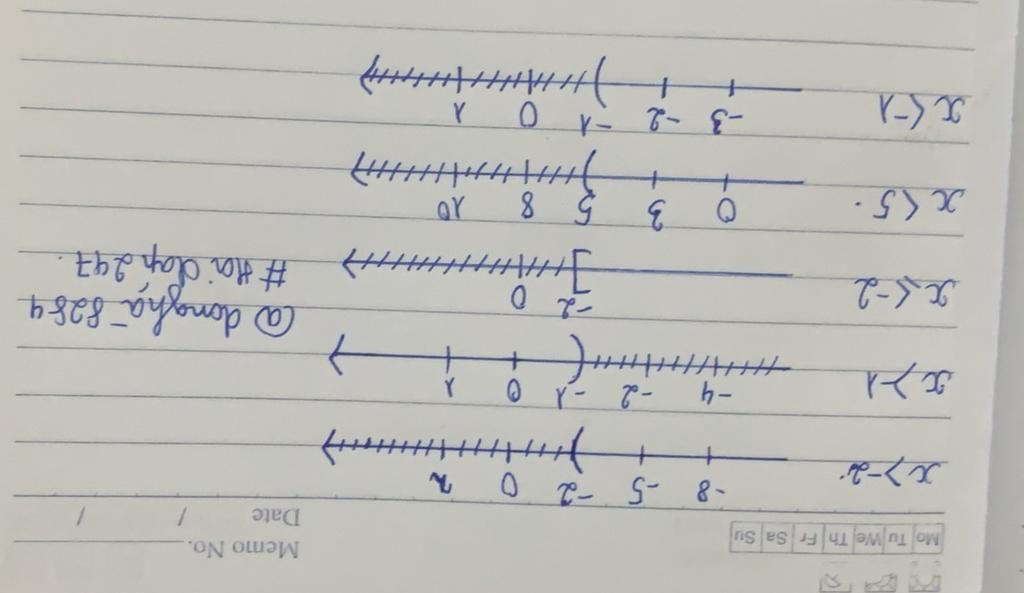 Memo No.
Mo Tu We Th Fr Sa Su
Date / /
x < -2 -8 -5 -2 0 2
x > -1 -4 -2 -1 0 1
@dongha_8284
x ≤ -2 -2 0
#Hoidap247.
x < 5 0 3 5 8 10
x < -1 -3 -2 -1 0 1